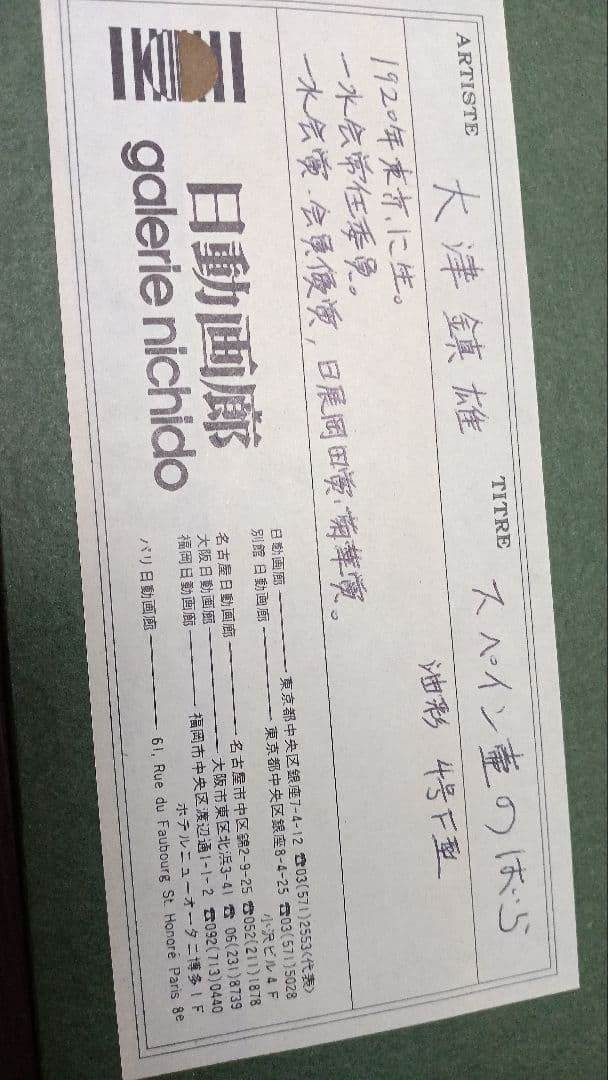 ARTISTE
大津 鎮雄
TITRE
スペイン壷のばら
油彩 4号F型
1920年東京に生。
一水会常任委員。
一水会賞、会員優賞, 日展岡田賞、菊華賞。
日動画廊
galerie nichido
日動画廊 ――― 東京都中央区銀座7-4-12 ☎03(571)2553〈代表〉
別館 日動画廊 ――― 東京都中央区銀座8-4-25 ☎03(571)5028
小沢ビル4F
名古屋日動画廊 ――― 名古屋市中区錦2-9-25 ☎052(211)1878
大阪日動画廊 ――― 大阪市東区北浜3-41 ☎06(231)8739
福岡日動画廊 ――― 福岡市中央区渡辺通1-1-2 ☎092(713)0440
ホテルニューオータニ博多1F
パリ日動画廊 ――― 61, Rue du Faubourg St. Honoré Paris 8e